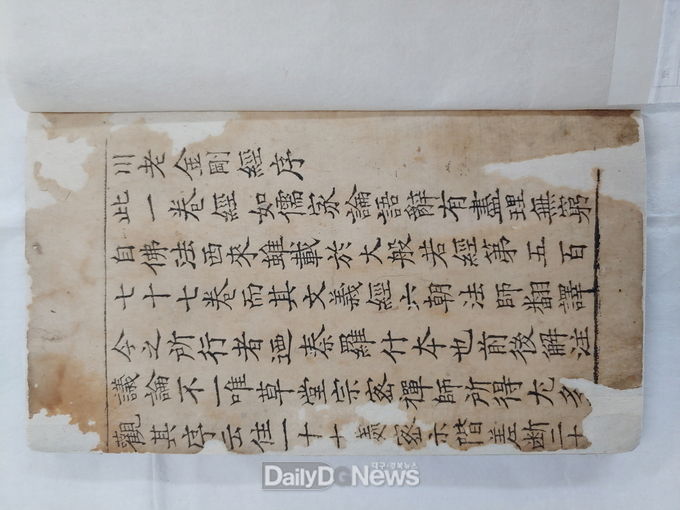 川老金剛經序
此一卷經如儒家論語辭有盡理無窮
自佛法西來雖載於大般若經第五百
七十七卷而其文義經六朝法師翻譯
今之所行者迺秦羅什本也前後解注
議論不一唯草堂宗密禪師所得尤多
觀其序云住一十處密示階差斷二十
대구·경북뉴스
DailyDGNews